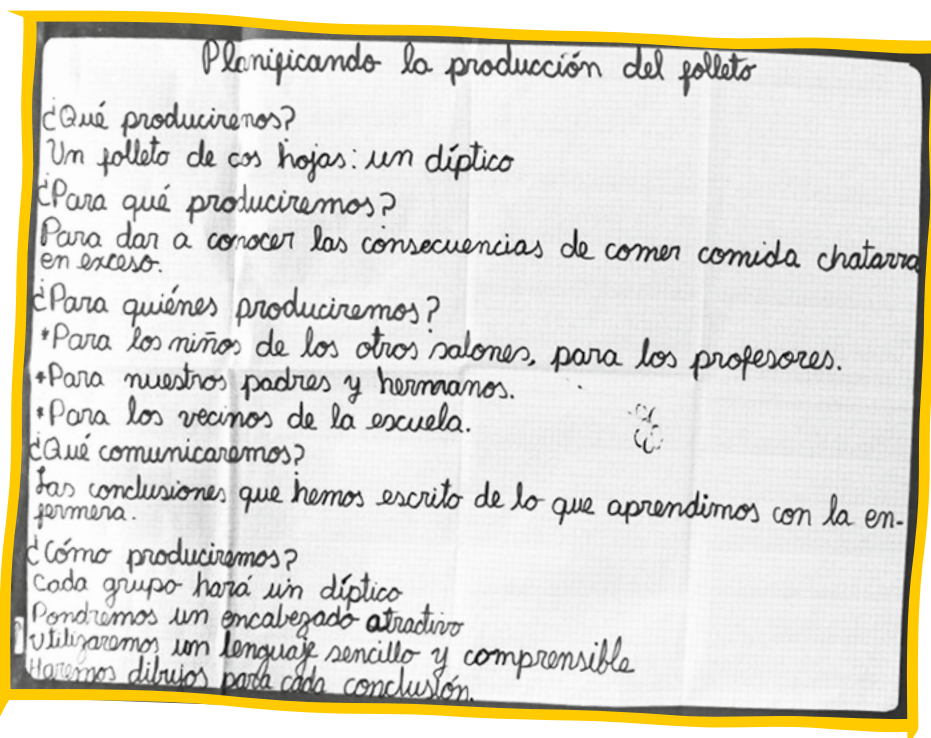 Planificando la producción del folleto
¿Qué producirenos?
Un folleto de cos hojas: un díptico
¿Para qué produciremos?
Para dar a conocer las consecuencias de comer comida chatarra
en exceso.
¿Para quiénes produciremos?
*Para los niños de los otros salones, para los profesores.
*Para nuestros padres y hermanos.
*Para los vecinos de la escuela.
¿Qué comunicaremos?
Las conclusiones que hemos escrito de lo que aprendimos con la en-
fermera.
¿Cómo produciremos?
Cada grupo hará un díptico
Pondremos un encabezado atractivo
Utilizaremos un lenguaje sencillo y comprensible
Haremos dibujos para cada conclusión.